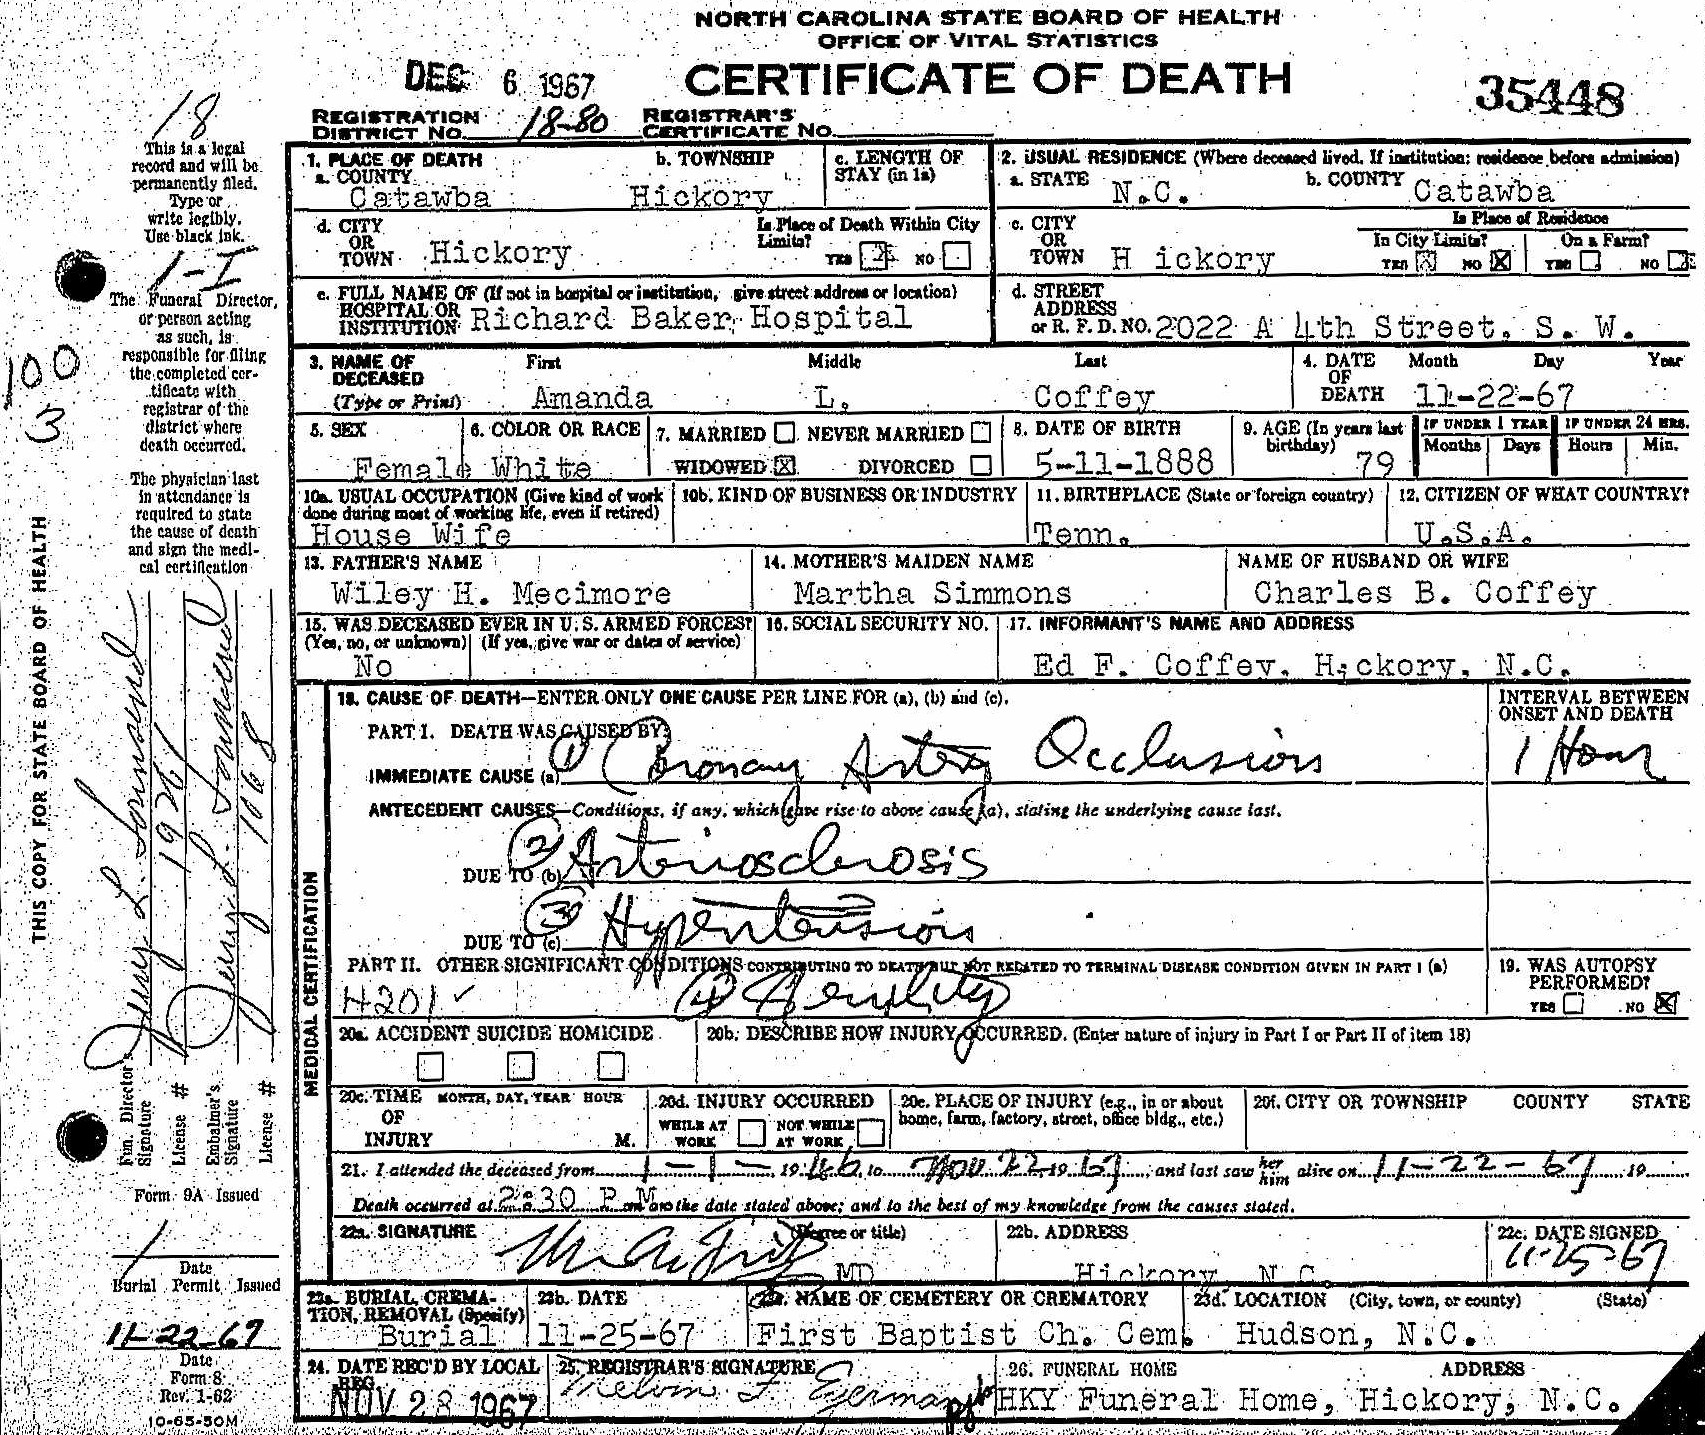 NORTH CAROLINA STATE BOARD OF HEALTH
OFFICE OF VITAL STATISTICS
CERTIFICATE OF DEATH
DEC 6 1967
35448
REGISTRATION DISTRICT NO. 18-80 REGISTRAR'S CERTIFICATE NO.
18
This is a legal
record and will be
permanently filed.
Type or
write legibly.
Use black ink.
1-I
The Funeral Director,
or person acting
as such, is
responsible for filing
the completed cer-
tificate with
registrar of the
district where
death occurred.
100
3
The physician last
in attendance is
required to state
the cause of death
and sign the medi-
cal certification
THIS COPY FOR STATE BOARD OF HEALTH
1. PLACE OF DEATH
a. COUNTY Catawba
b. TOWNSHIP Hickory
c. LENGTH OF STAY (in 1a)
2. USUAL RESIDENCE (Where deceased lived. If institution: residence before admission)
a. STATE N.C. b. COUNTY Catawba
d. CITY OR TOWN Hickory
Is Place of Death Within City Limits? YES X NO
c. CITY OR TOWN H ickory
Is Place of Residence
In City Limits? YES X NO X On a Farm? YES NO X
e. FULL NAME OF (If not in hospital or institution, give street address or location)
HOSPITAL OR INSTITUTION Richard Baker Hospital
d. STREET ADDRESS or R. F. D. NO. 2022 A 4th Street, S. W.
3. NAME OF DECEASED (Type or Print)
First Amanda Middle L. Last Coffey
4. DATE OF DEATH Month Day Year 11-22-67
5. SEX Female
6. COLOR OR RACE White
7. MARRIED NEVER MARRIED
WIDOWED X DIVORCED
8. DATE OF BIRTH 5-11-1888
9. AGE (In years last birthday) 79
IF UNDER 1 YEAR Months Days
IF UNDER 24 HRS. Hours Min.
10a. USUAL OCCUPATION (Give kind of work done during most of working life, even if retired)
House Wife
10b. KIND OF BUSINESS OR INDUSTRY
11. BIRTHPLACE (State or foreign country) Tenn.
12. CITIZEN OF WHAT COUNTRY? U.S.A.
13. FATHER'S NAME Wiley H. Mecimore
14. MOTHER'S MAIDEN NAME Martha Simmons
NAME OF HUSBAND OR WIFE Charles B. Coffey
15. WAS DECEASED EVER IN U. S. ARMED FORCES?
(Yes, no, or unknown) (If yes, give war or dates of service)
No
16. SOCIAL SECURITY NO.
17. INFORMANT'S NAME AND ADDRESS
Ed F. Coffey, Hickory, N.C.
MEDICAL CERTIFICATION
18. CAUSE OF DEATH—ENTER ONLY ONE CAUSE PER LINE FOR (a), (b) and (c).
INTERVAL BETWEEN ONSET AND DEATH
PART I. DEATH WAS CAUSED BY:
IMMEDIATE CAUSE (a) 1 Coronary Artery Occlusion 1 Hour
ANTECEDENT CAUSES—Conditions, if any, which gave rise to above cause (a), stating the underlying cause last.
DUE TO (b) 2 Arteriosclerosis
DUE TO (c) 3 Hypertension
PART II. OTHER SIGNIFICANT CONDITIONS CONTRIBUTING TO DEATH BUT NOT RELATED TO TERMINAL DISEASE CONDITION GIVEN IN PART I (a)
4201 ✓ 4 Senility
19. WAS AUTOPSY PERFORMED? YES NO X
20a. ACCIDENT SUICIDE HOMICIDE
20b. DESCRIBE HOW INJURY OCCURRED. (Enter nature of injury in Part I or Part II of item 18)
20c. TIME OF INJURY MONTH, DAY, YEAR HOUR M.
20d. INJURY OCCURRED
WHILE AT WORK NOT WHILE AT WORK
20e. PLACE OF INJURY (e.g., in or about home, farm, factory, street, office bldg., etc.)
20f. CITY OR TOWNSHIP COUNTY STATE
21. I attended the deceased from 1-1- 1946, to Nov 22 1967, and last saw her him alive on 11-22-67 19
Death occurred at 2:30 P.M. on the date stated above; and to the best of my knowledge from the causes stated.
22a. SIGNATURE (Degree or title) MD
22b. ADDRESS Hickory, N.C.
22c. DATE SIGNED 11-25-67
23a. BURIAL, CREMATION, REMOVAL (Specify) Burial
23b. DATE 11-25-67
23c. NAME OF CEMETERY OR CREMATORY First Baptist Ch. Cem.
23d. LOCATION (City, town, or county) (State) Hudson, N.C.
24. DATE REC'D BY LOCAL REG. NOV 28 1967
25. REGISTRAR'S SIGNATURE Melvin F. Eyerman pjb
26. FUNERAL HOME ADDRESS
HKY Funeral Home, Hickory, N.C.
Fun. Director's Signature
License # 1926
Embalmer's Signature
License # 1068
Form 9A Issued
Date
Burial Permit Issued
11-22-67
Date
Form 8
Rev. 1-62
10-65-50M